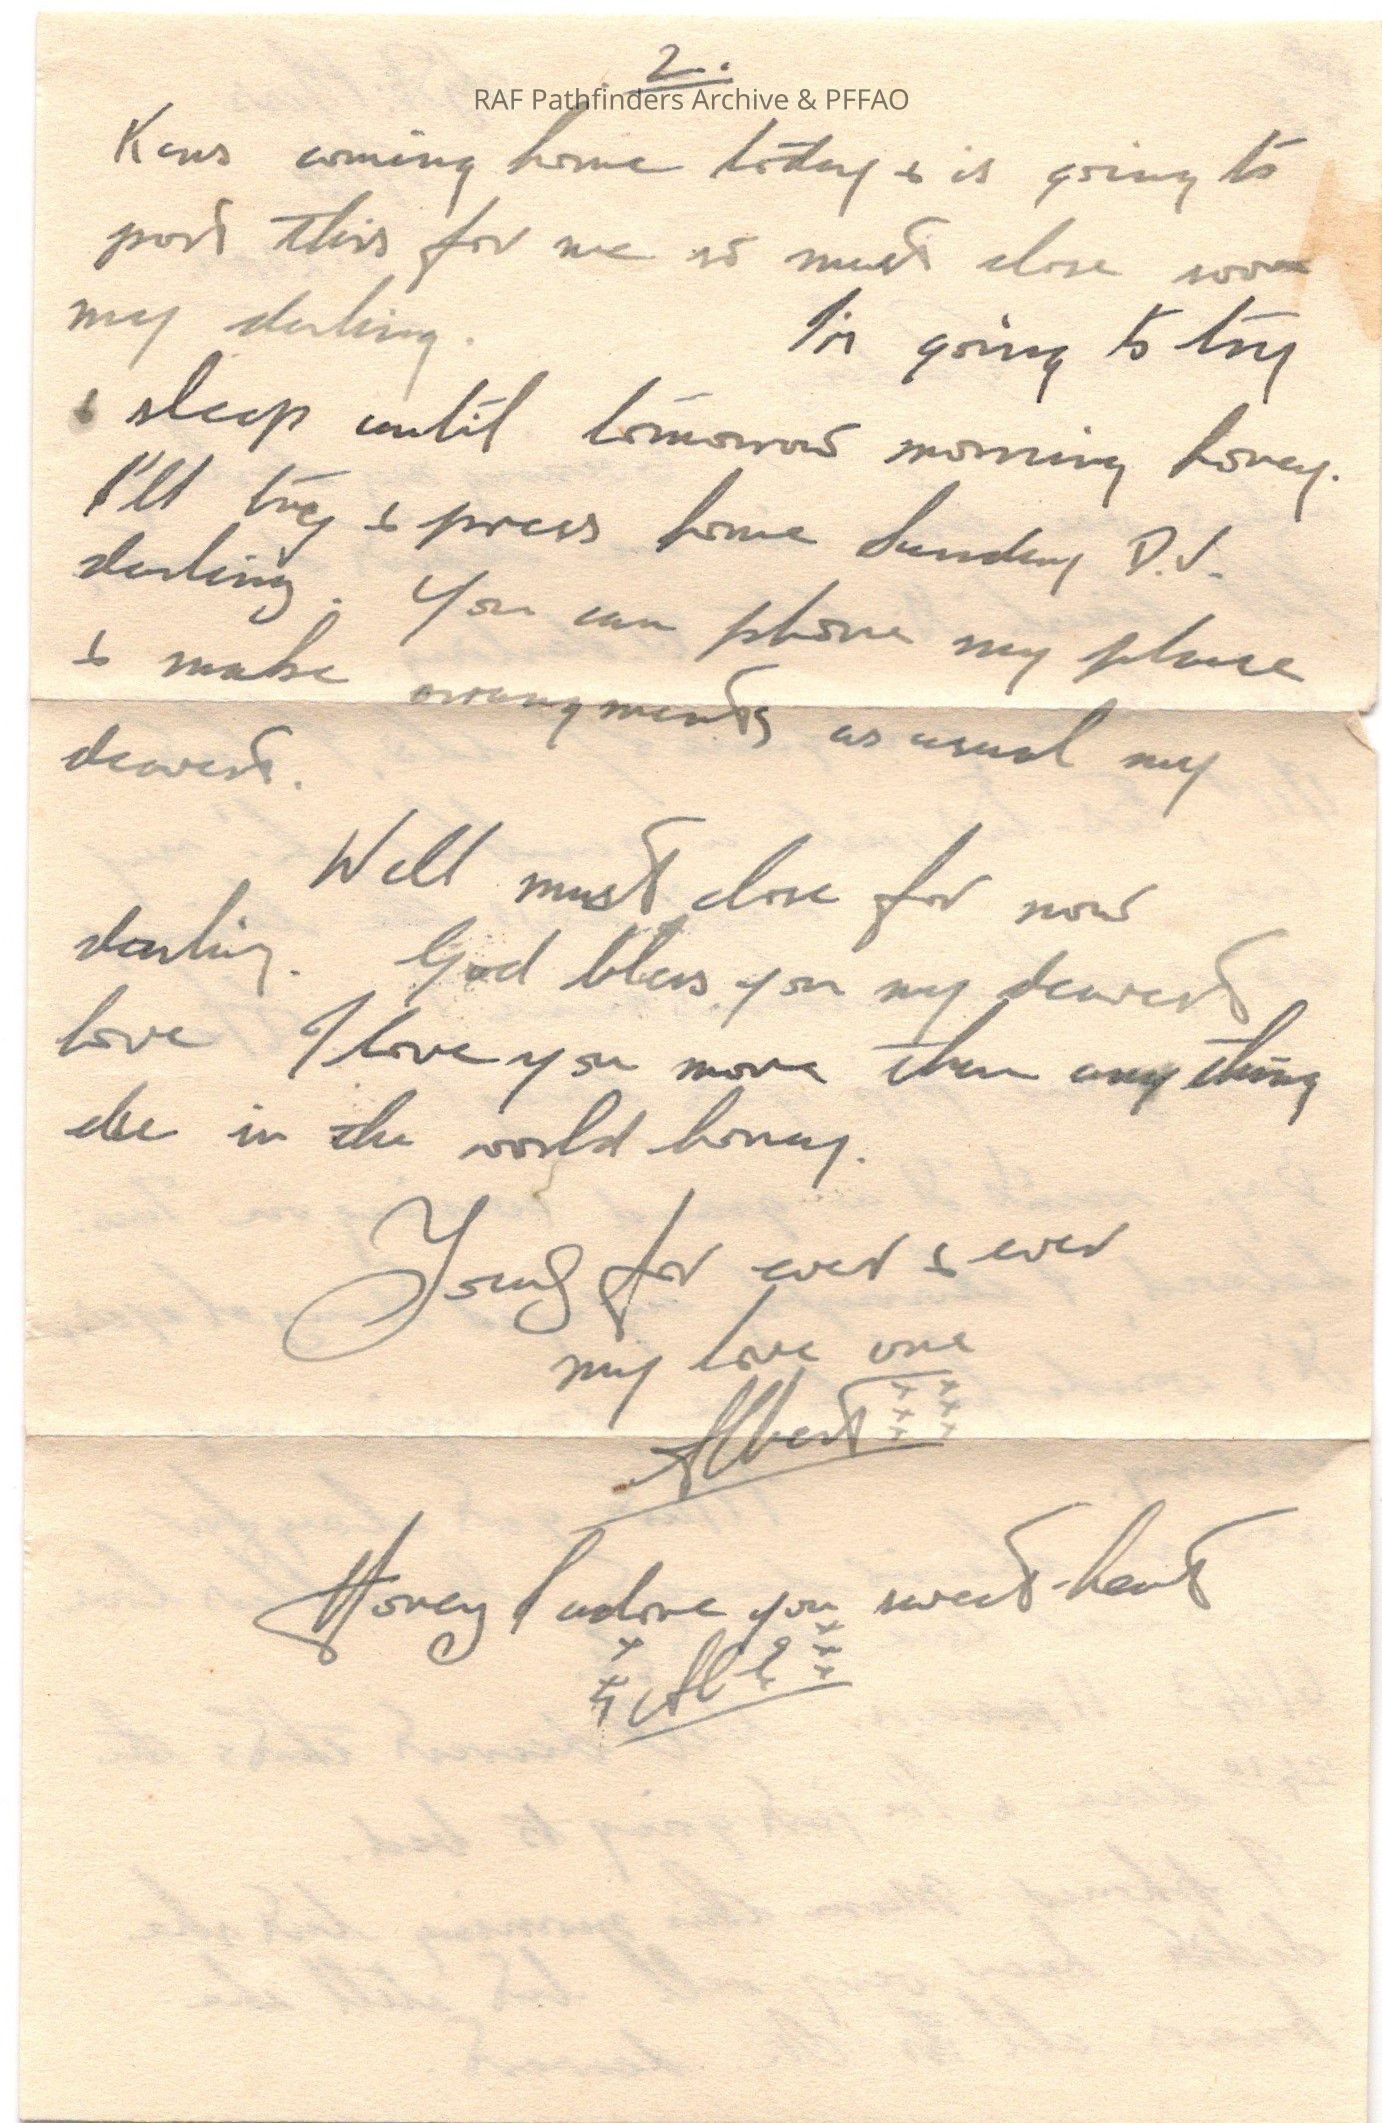 2.
RAF Pathfinders Archive & PFFAO
Kens coming home today & is going to
post this for me so must close soon
my darling. I'm going to try
& sleep until tomorrow morning honey.
I'll try & press home Sunday D.V.
darling. You can phone my place
& make arrangments as usual my
dearest.
Well must close for now
darling. God bless you my dearest
love I love you more then anything
else in the world honey.
Yours for ever & ever
my love one
Albert x x x x x x
Honey I adore you sweet-heart
x x x Al x x x